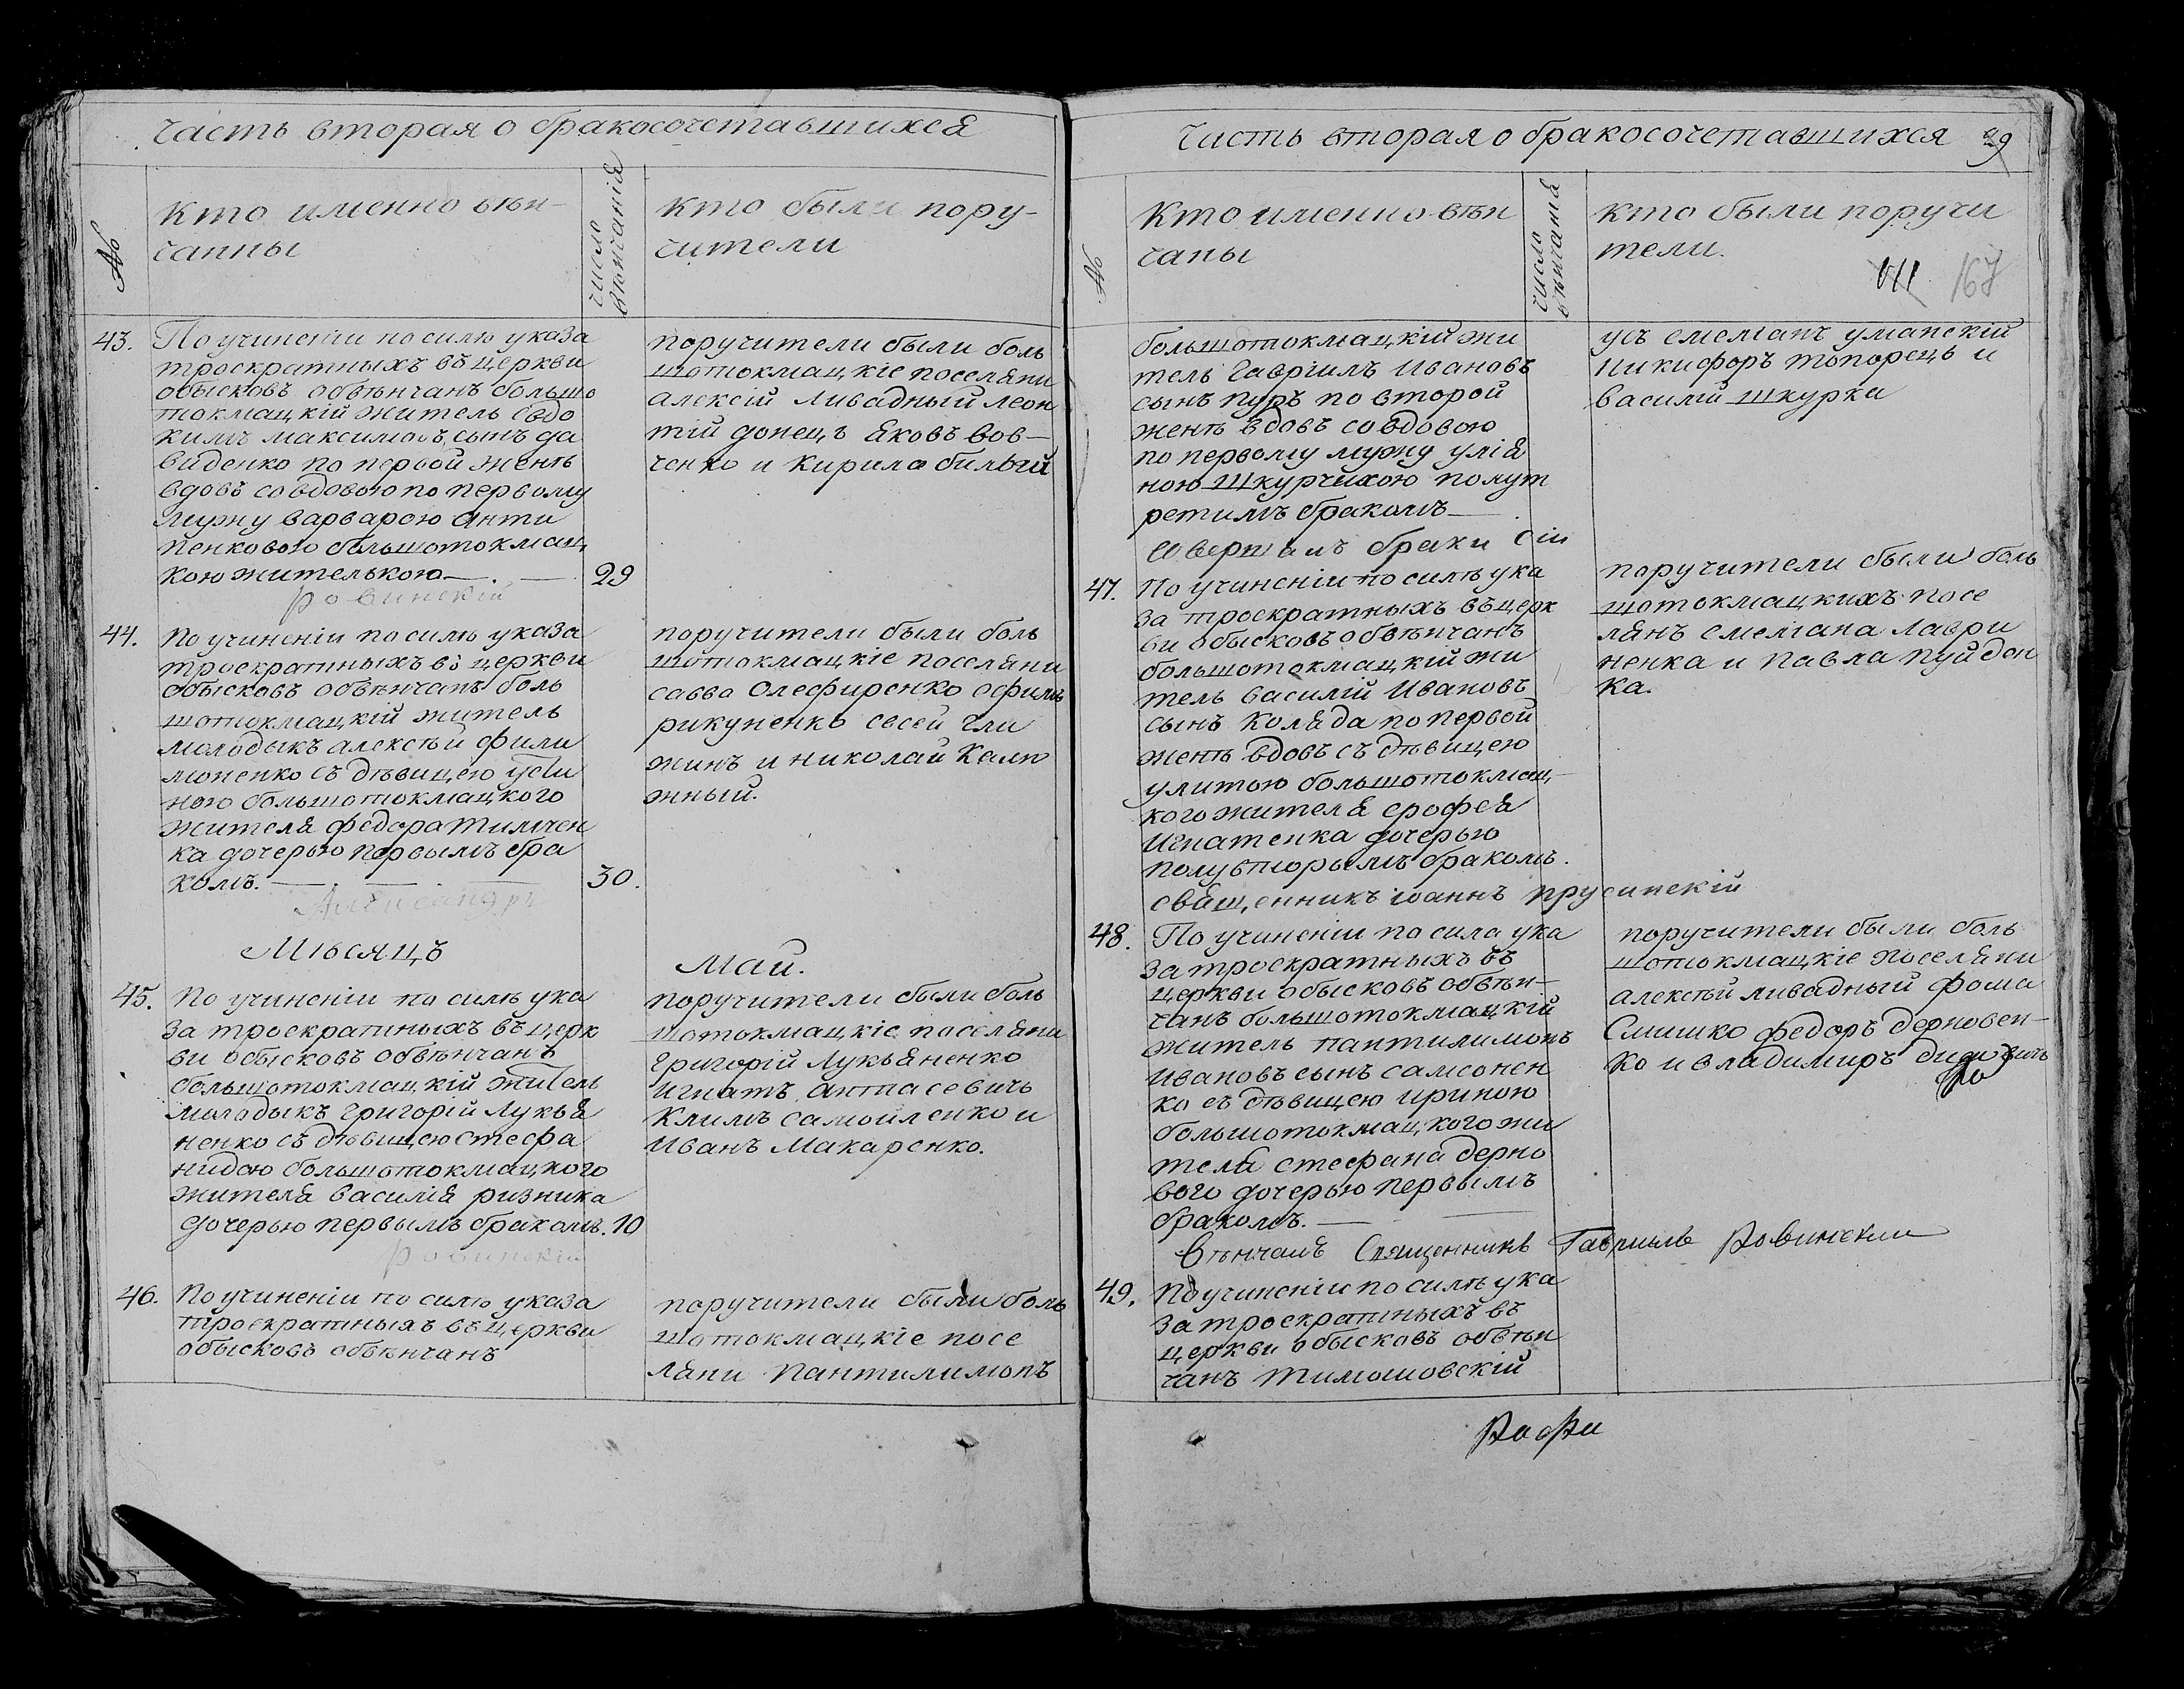 Часть вторая о бракосочетавшихся
№
Кто именно вѣн-
чанны
число
вѣнчанія
Кто были пору-
чители
43.
По учиненіи по силѣ указа
троекратныхъ въ церкви
обысковъ обвѣнчанъ большо
токмацкій житель Евдо
кимъ Максимовъ сынъ Да
виденко по первой женѣ
вдовъ со вдовою по первому
мужу Варварою Анти
пенковою большотокмац
кою жителькою — . —
29
Ровинскій
поручители были боль
шотокмацкіе поселяни
Алексій Ливадный Леон
тій Донецъ Яковъ Вов-
ченко и Кирила Билый
44.
По учиненіи по силѣ указа
троекратныхъ въ церкви
обысковъ обвѣнчанъ боль
шотокмацкій житель
молодыкъ Алексѣй Фили
моненко съ дѣвицею Усти
ною большотокмацкого
жителя Федора Тимчен
ка дочерью первымъ бра
комъ. —
30.
Александръ
поручители были боль
шотокмацкіе поселяни
Савва Олефиренко Ефимъ
Рикуненко Евсей
жинъ и Николай Калю
жный.
Мѣсяцъ
Май.
45.
По учиненіи по силѣ ука
за троекратныхъ въ церк
ви обысковъ обвѣнчанъ
большотокмацкій житель
молодыкъ Григорій Лукья
ненко съ дѣвицею Стефа
нидою большотокмацкого
жителя Василія Ризника
дочерью первымъ бракомъ.
10
Ровинскій
поручители были боль
шотокмацкіе поселяни
Григорій Лукьяненко
Игнатъ Антасевичь
Климъ Самойленко и
Иванъ Макаренко.
46.
По учиненіи по силѣ указа
троекратныхъ въ церкви
обысковъ обвѣнчанъ
поручители были боль
шотокмацкіе посе
ляни Пантилимонъ
Часть вторая о бракосочетавшихся
99
№
Кто именно вѣн
чаны
число
вѣнчанія
Кто были поручи
тели.
167
большотокмацкій жи
тель Гавріилъ Ивановъ
сынъ Пуръ по второй
женѣ вдовъ со вдовою
по первому мужу Улія
ною Шкурчихою полут
ретимъ бракомъ —
Совершалъ браки сіи
усъ Емеліанъ Уманскій
Никифоръ Топорецъ и
Василій Шкурка
47.
По учиненіи по силѣ ука
за троекратныхъ въ церк
ви обысковъ обвѣнчанъ
большотокмацкій жи
тель Василій Ивановъ
сынъ Коляда по первой
женѣ вдовъ съ дѣвицею
Улитою большотокмац-
кого жителя Ерофея
Игнатенка дочерью
полувторымъ бракомъ.
Священникъ Іоаннъ Прусинскій
поручители были боль
шотокмацкихъ посе
лянъ Емеліана Лаври
ненка и Павла Пуйден
ка.
48.
По учиненіи по сила ука
за троекратныхъ въ
церкви обысковъ обвѣн-
чанъ большотокмацкій
житель Пантилимонъ
Ивановъ сынъ Самсонен
ко съ дѣвицею Ириною
большотокмацкого жи
теля Стефана Дерно
вого дочерью первымъ
бракомъ. —
Вѣнчалъ Священникъ Гавріилъ Ровинскій
поручители были боль
шотокмацкіе поселяни
Алексѣй Ливадный Фома
Слишко Федоръ Дерновен-
ко и Владимиръ
49.
По учиненіи по силѣ ука
за троекратныхъ въ
церкви обысковъ обвѣн
чанъ Тимошовскій